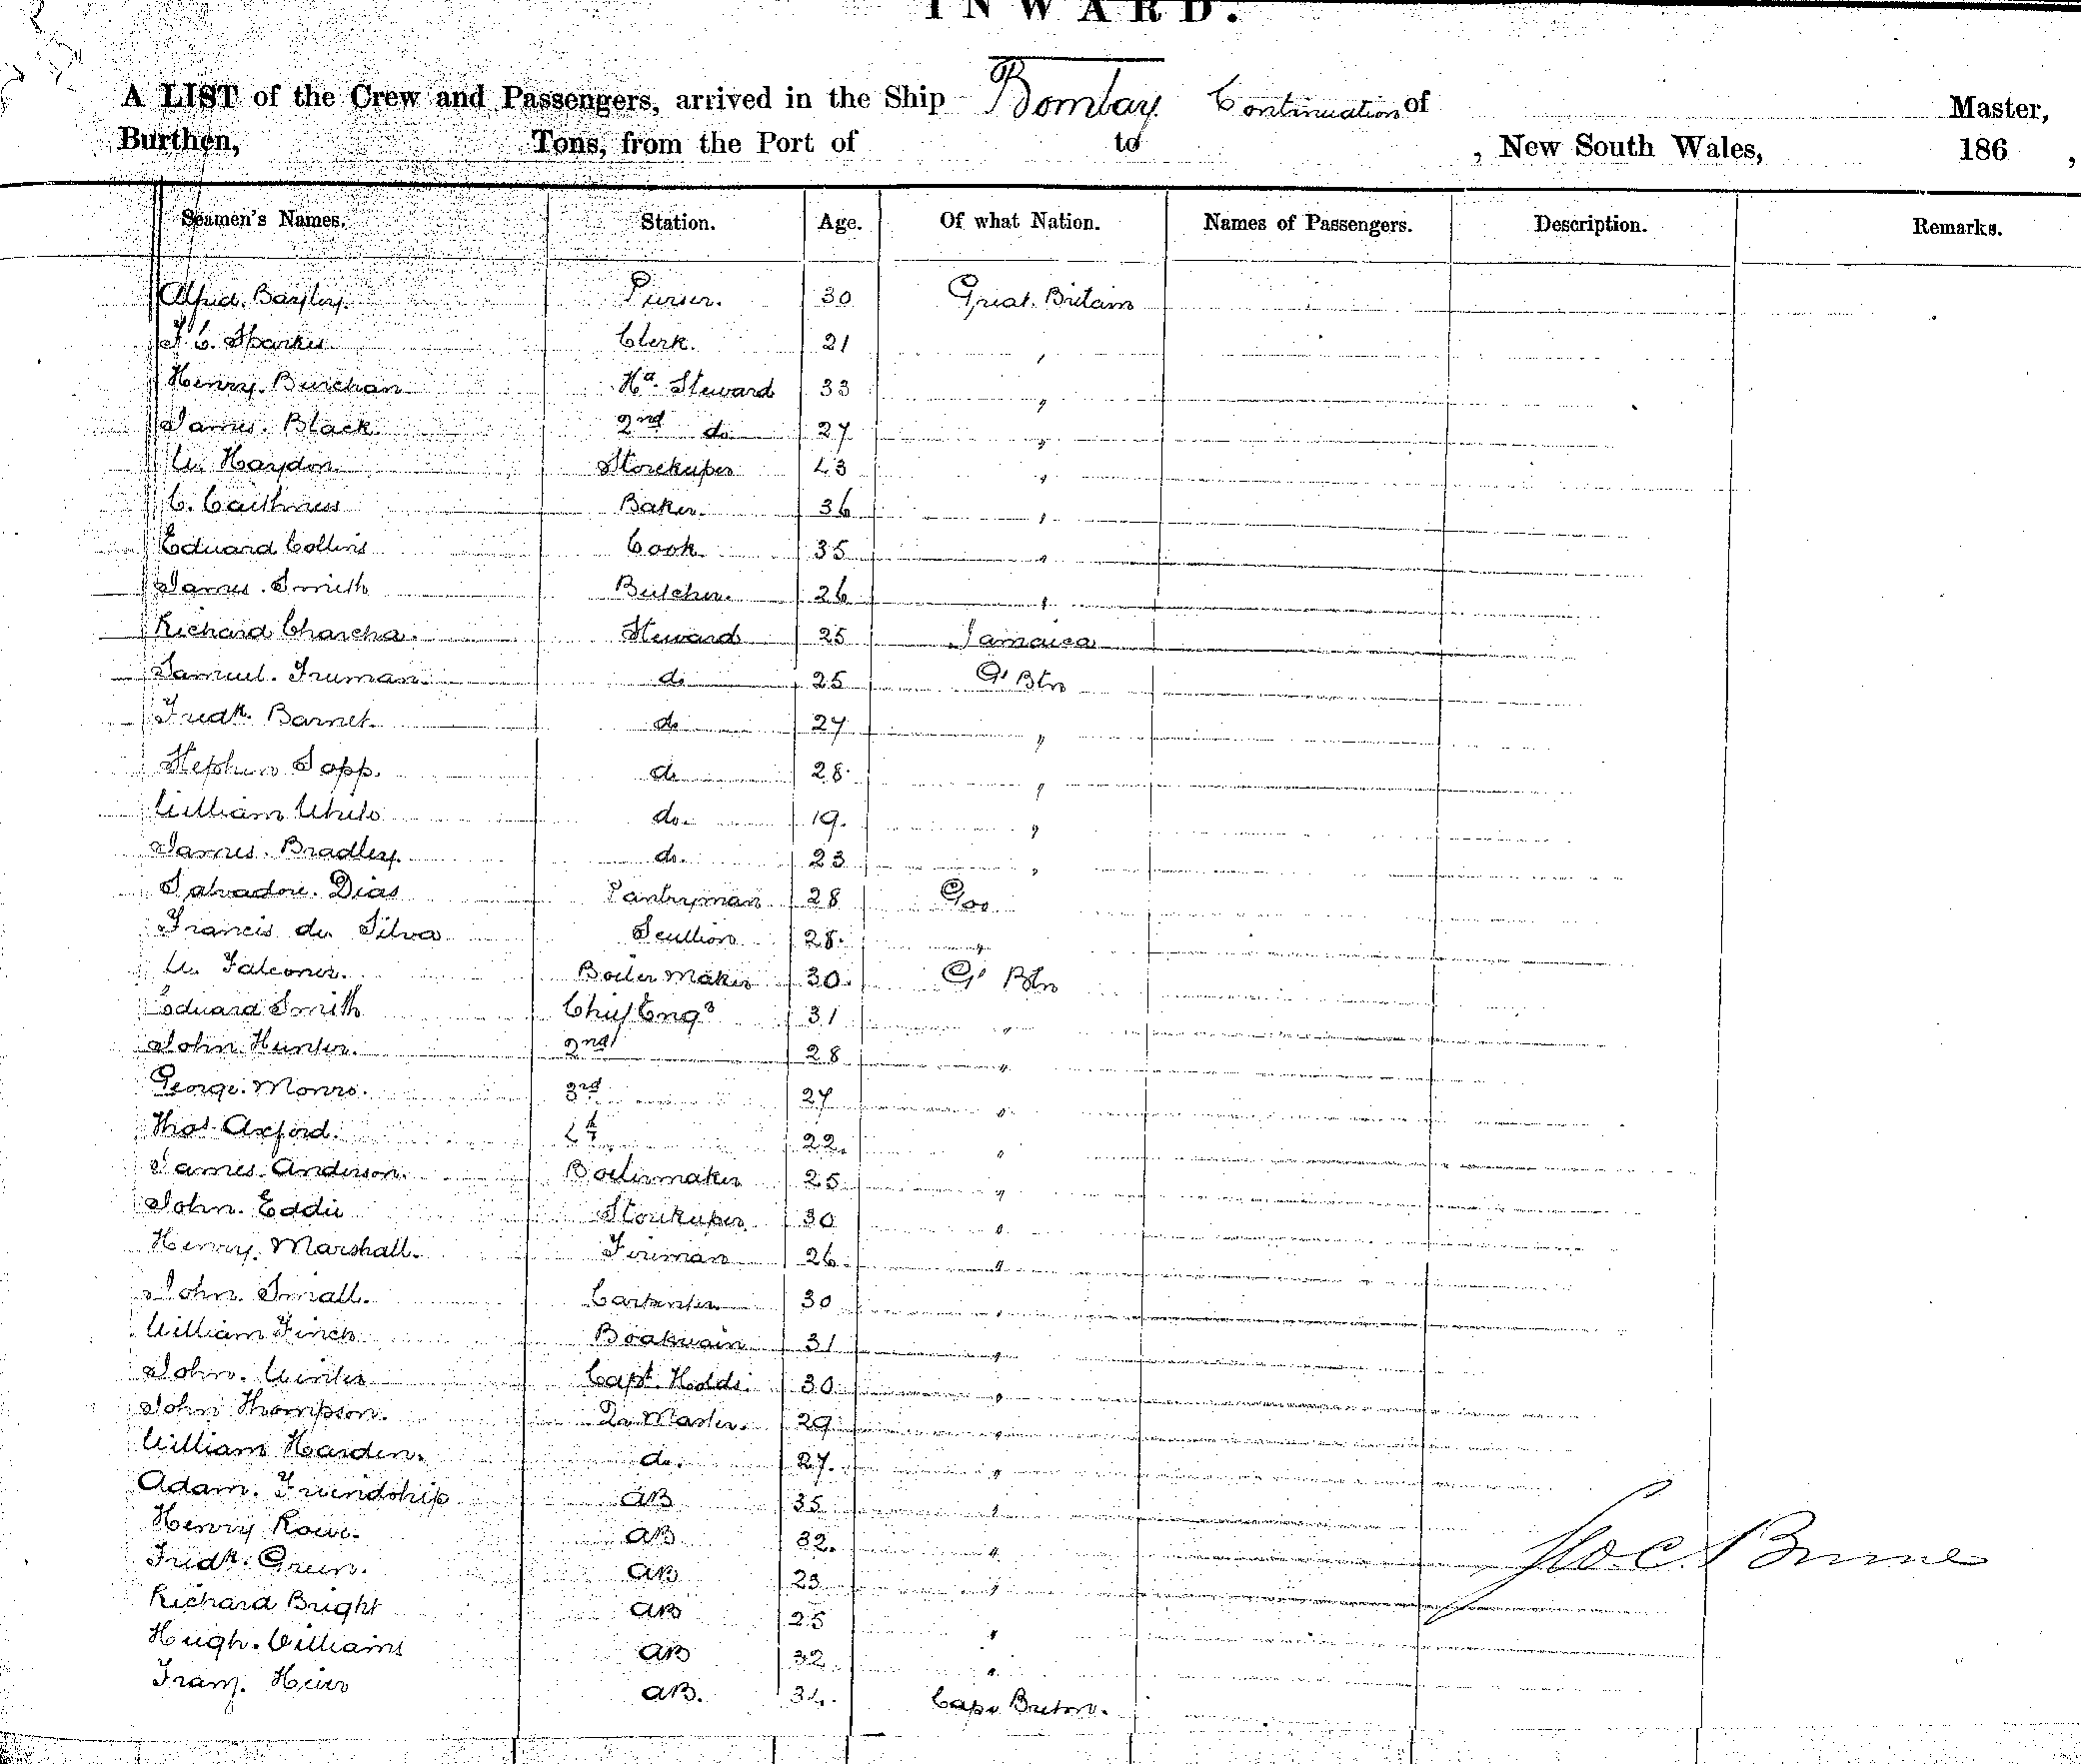 INWARD.
A LIST of the Crew and Passengers, arrived in the Ship Bombay. Continuation of Master,
Burthen, Tons, from the Port of to , New South Wales, 186 ,
Seamen's Names. Station. Age. Of what Nation. Names of Passengers. Description. Remarks.
Alfred. Bayley. Purser. 30 Great. Britain
Clerk. 21 "
Henry. Burchan Hd. Steward 33 "
James. Black. 2nd do 27 "
W. Haydon. Storekeeper 43 "
C. Caithness Baker. 36 "
Edward Collins Cook. 35 "
James. Smith Butcher. 26 "
Richard Charcha. Steward 25 Jamaica
Samuel. Truman. do 25 Gt Btn
Fredk. Barnet. do 27 "
Stephen Sopp. do 28. "
William White do. 19. "
James. Bradley. do. 23 "
Salvadore. Dias Pantryman 28 Goa
Francis de Silva Scullion 28. "
W. Falconer. Boiler Maker 30. Gt Btn
Edward Smith Chief Engr 31 "
John Hunter. 2nd 28 "
George. Monro. 3rd 27 "
Thos. Axford. 4th 22. "
James. Anderson. Boilermaker 25 "
John. Eddie Storekeeper 30 "
Henry. Marshall. Fireman 26. "
John. Small. Carpenter 30 "
William Finch Boatswain 31 "
John. Winter Capt. Holds. 30 "
John Thompson. Qr Master. 29 "
William Harden. do. 27. "
Adam. Friendship AB 35 "
Henry Rowe. AB 32. "
Fredk. Green. AB 23 "
Richard Bright AB 25 "
Hugh. Williams AB 32 "
Franz. AB. 34. Cape Breton.